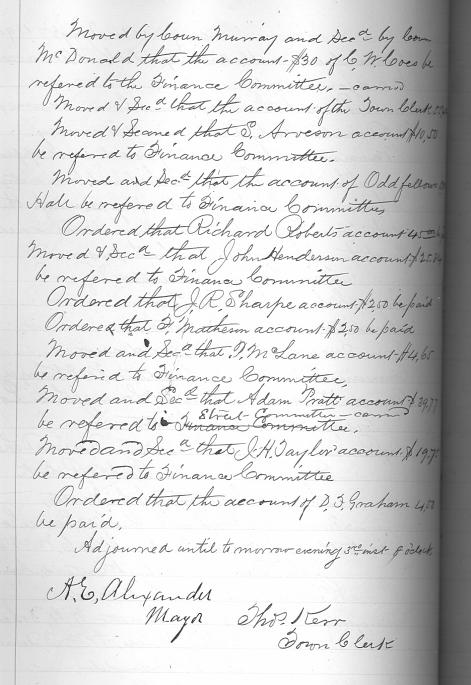 Moved by Coun Murray and Secd by Coun
McDonald that the account $30 of C. W. Coes be
refered to the Finance Committee. — carrid
Moved & Secd that the account of the Town Clerk
Moved & Secned that E, Arveson account $10,50
be refered to Finance Committee.
Moved and Secd that the account of Oddfellows
Hall be refered to Finance Committee
Ordered that Richard Roberts account 45.00
Moved & Secd that John Henderson account $25.84
be refered to Finance Committee
Ordered that J. R. Sharpe account $2,50 be paid
Ordered that F. Matheson account $2,50 be paid
Moved and Secd that McLane account $4,65
be referid to Finance Committee.
Moved and Secd that Adam Pratt account $39,77
Street Committee — carrid
be refered to Finance Committee.
Moved and Secd that J. H. Taylor account $19,75
be refered to Finance Committee
Ordered that the account of D. F. Graham 4,50
be paid.
Adjourned until to morrow evening 3rd inst oclock
A. E, Alexander
Mayor
Thos. Kerr
Town Clerk